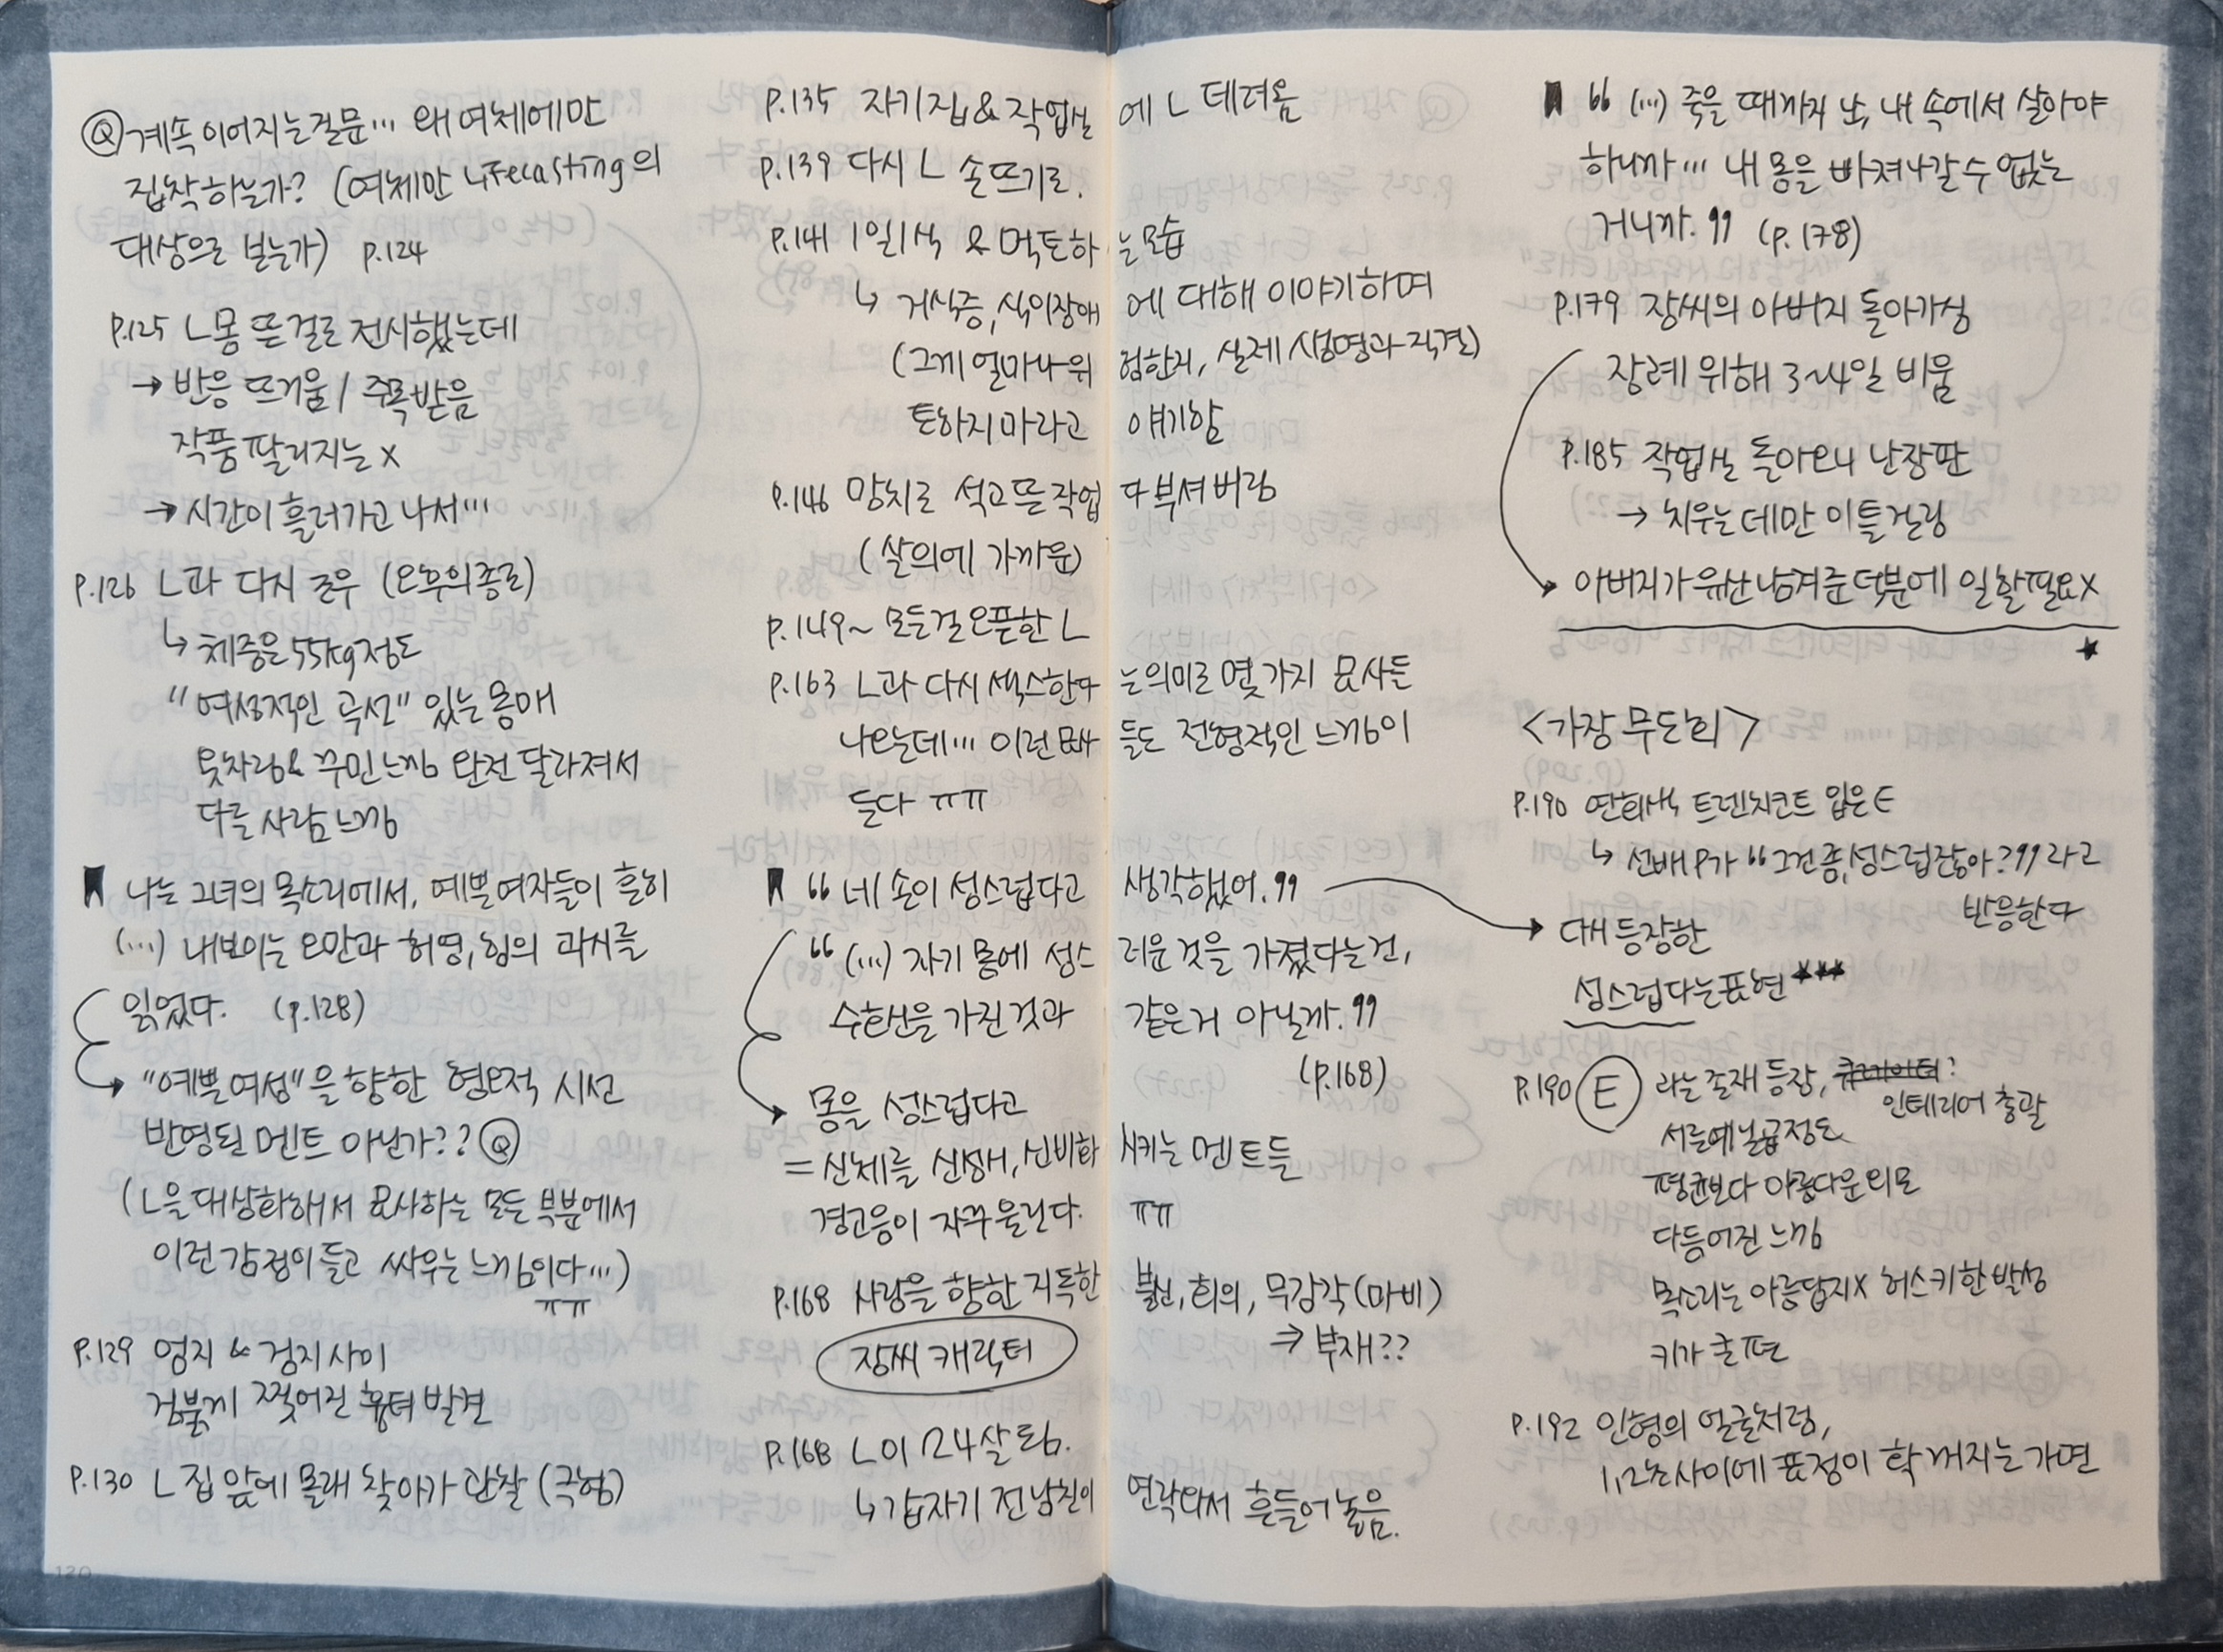 Q 계속 이어지는 질문… 왜 여체에만
집착하는가? (여체만 Lifecasting의
대상으로 보는가) p.124
p.125 L몸 뜬 걸로 전시했는데
→ 반응 뜨거움 / 주목받음
작품 팔리지는 x
→ 시간이 흘러가고 나서…
p.126 L과 다시 조우 (오후의 종로)
↳ 체중은 55kg정도
"여성적인 곡선" 있는 몸매
옷차림 & 꾸민느낌 완전 달라져서
다른 사람 느낌
나는 그녀의 목소리에서, 예쁜 여자들이 흔히
(…) 내보이는 오만과 허영, 힘의 과시를
읽었다. (p.128)
→ "예쁜 여성"을 향한 혐오적 시선
반영된 멘트 아닌가?? Q
(L을 대상화해서 묘사하는 모든 부분에서
이런 감정이 들고 싸우는 느낌이다…)
ㅠㅠ
p.129 엄지 & 검지 사이
검붉게 찢어진 흉터 발견
p.130 L 집 앞에 몰래 찾아가 관찰 (극혐)
p.135 자기 집 & 작업실에 L 데려옴
p.139 다시 L 손 뜨기로.
p.141 1일1식 & 먹토하는 모습
↳ 거식증, 식이장애에 대해 이야기하며
(그게 얼마나 위험한지, 실제 생명과 직결)
토하지 마라고 얘기함
p.146 망치로 석고 뜬 작업 다 부셔버림
(살의에 가까운)
p.149~ 모든걸 오픈한 L
p.163 L과 다시 섹스한다는 의미로 몇 가지 묘사들
나오는데… 이런 묘사들도 전형적인 느낌이
들다 ㅠㅠ
“ 네 손이 성스럽다고 생각했어. ”
“ (…) 자기 몸에 성스러운 것을 가졌다는 건,
수화산을 가진 것과 같은 거 아닐까. ”
(p.168)
→ 몸을 성스럽다고
= 신체를 신성시, 신비화 시키는 멘트들
경고음이 자꾸 울린다. ㅠㅠ
p.168 사랑을 향한 지독한 불신, 회의, 무감각(마비)
⇒ 부재??
장씨 캐릭터
p.168 L이 24살 됨.
↳ 갑자기 전 남친이 연락와서 흔들어 놓음.
“ (…) 죽을 때까지 난, 내 속에서 살아야
하니까… 내 몸을 빠져나갈 수 없는
거니까. ” (p.178)
p.179 장씨의 아버지 돌아가심
장례 위해 3~4일 비움
p.185 작업실 돌아오니 난장판
→ 치우는 데만 이틀 걸림
→ 아버지가 유산 남겨준 덕분에 일할 필요 x
★
<가장무도회>
p.190 연회색 트렌치코트 입은 E
↳ 선배 P가 “ 그건 좀, 성스럽잖아? ” 라고
반응한다
→ 대해 등장한
성스럽다는 표현 ★★★
p.190 E 라는 존재 등장, 큐레이터:
인테리어 총괄
서른예닐곱정도
평균보다 아름다운 외모
다듬어진 느낌
목소리는 아름답지 x 허스키한 발성
키가 큰 편
p.192 인형의 얼굴처럼,
1,2초 사이에 표정이 확 꺼지는 가면
120